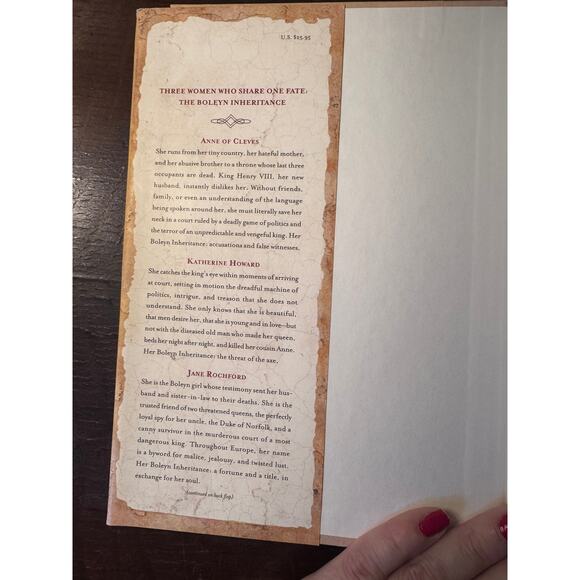 U.S. $25.95
THREE WOMEN WHO SHARE ONE FATE:
THE BOLEYN INHERITANCE
ANNE OF CLEVES
She runs from her tiny country, her hateful mother,
and her abusive brother to a throne whose last three
occupants are dead. King Henry VIII, her new
husband, instantly dislikes her. Without friends,
family, or even an understanding of the language
being spoken around her, she must literally save her
neck in a court ruled by a deadly game of politics and
the terror of an unpredictable and vengeful king. Her
Boleyn Inheritance: accusations and false witnesses.
KATHERINE HOWARD
She catches the king's eye within moments of arriving
at court, setting in motion the dreadful machine of
politics, intrigue, and treason that she does not
understand. She only knows that she is beautiful,
that men desire her, that she is young and in love—but
not with the diseased old man who made her queen,
beds her night after night, and killed her cousin Anne.
Her Boleyn Inheritance: the threat of the axe.
JANE ROCHFORD
She is the Boleyn girl whose testimony sent her hus-
band and sister-in-law to their deaths. She is the
trusted friend of two threatened queens, the perfectly
loyal spy for her uncle, the Duke of Norfolk, and a
canny survivor in the murderous court of a most
dangerous king. Throughout Europe, her name
is a byword for malice, jealousy, and twisted lust.
Her Boleyn Inheritance: a fortune and a title, in
exchange for her soul.
(continued on back flap)